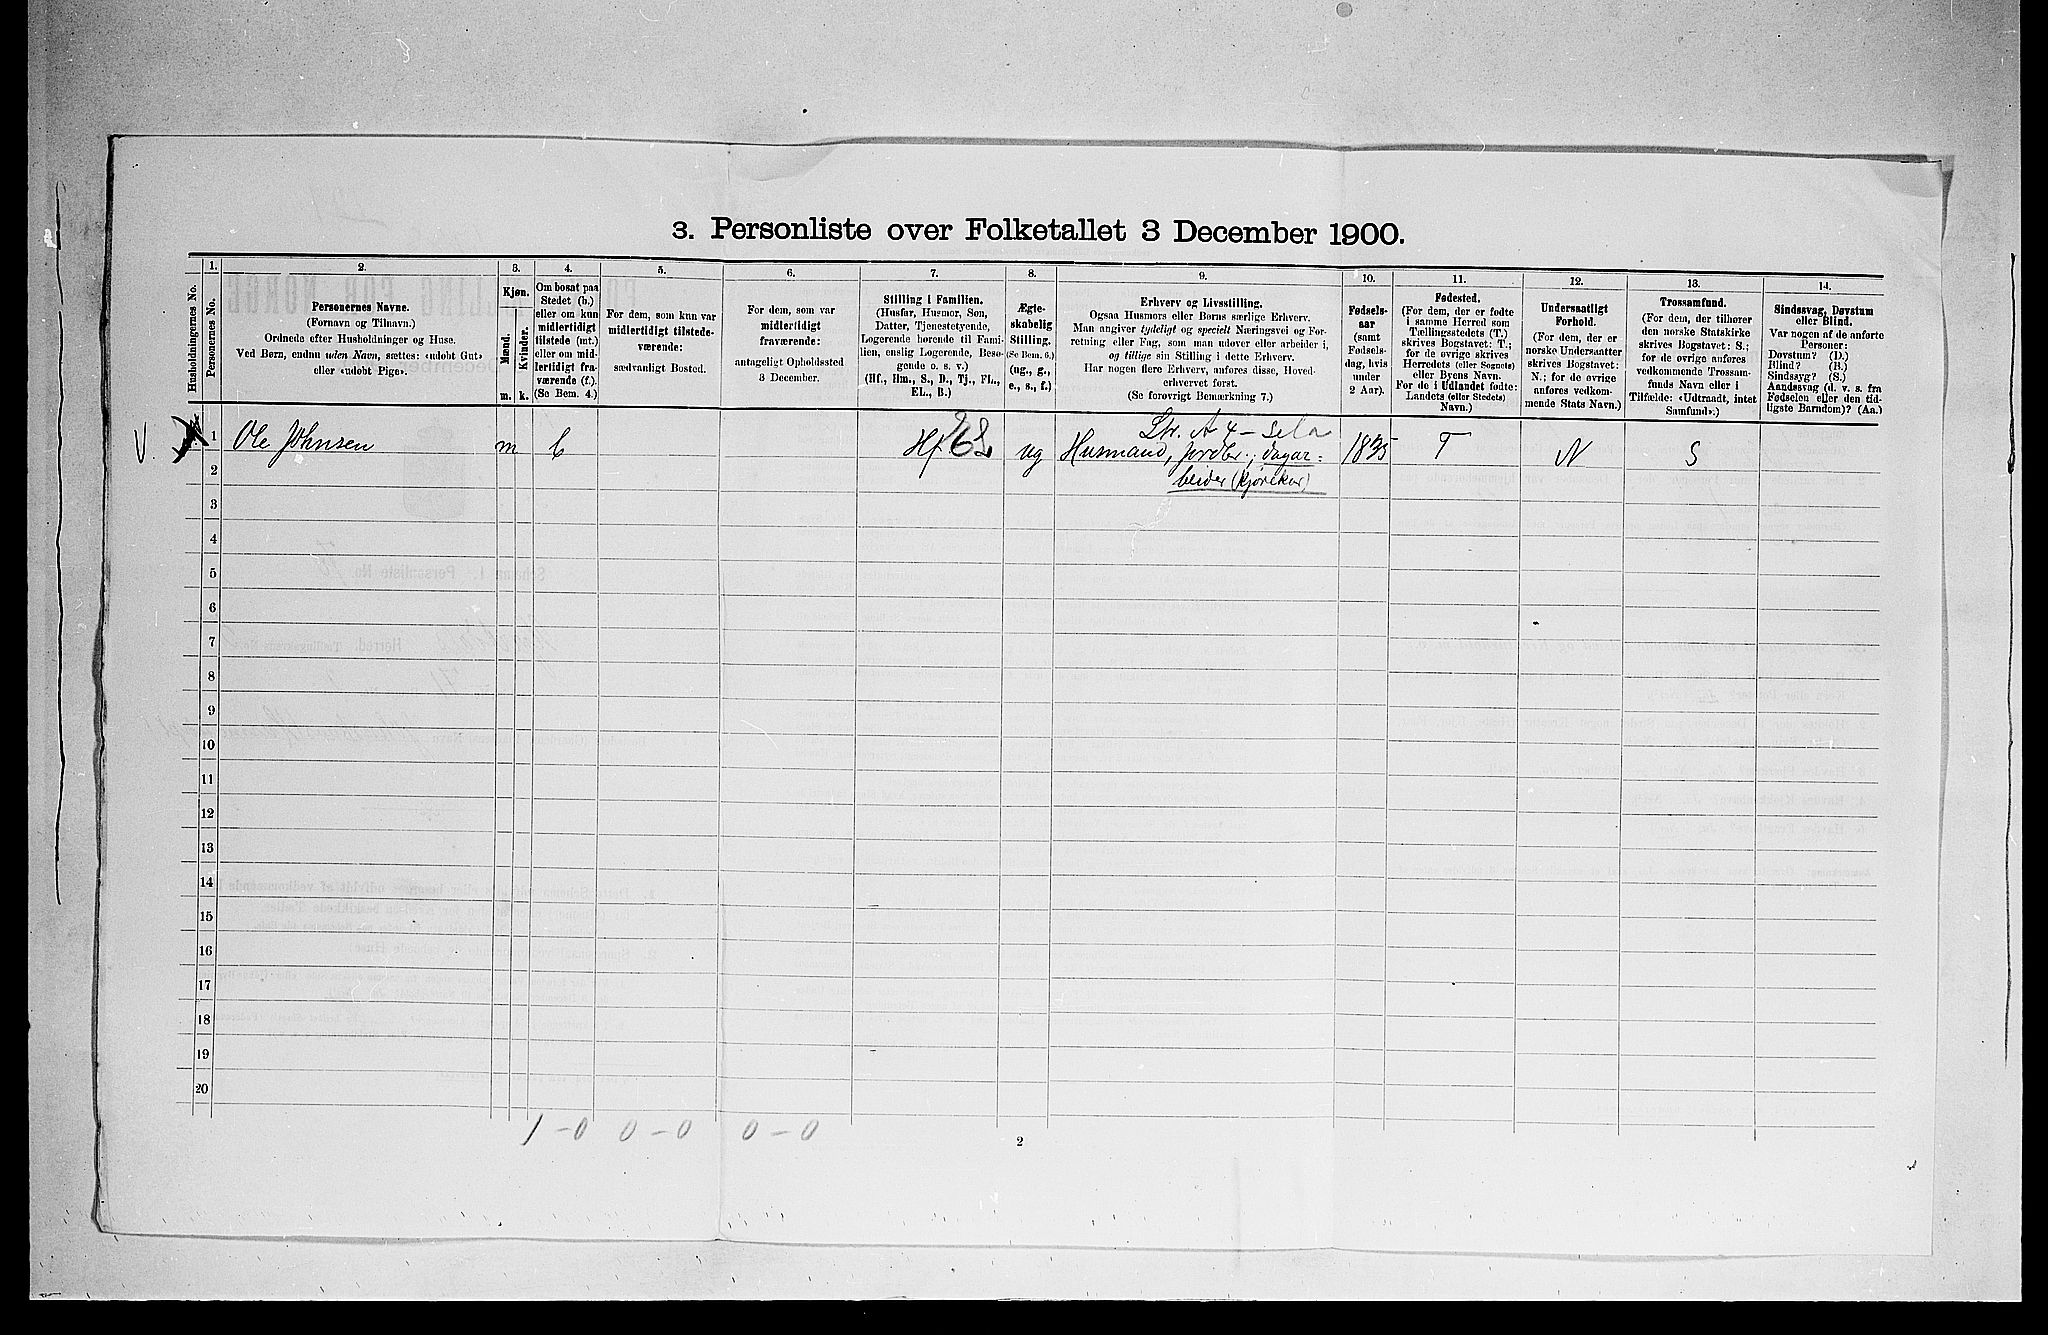 3. Personliste over Folketallet 3 December 1900.
1. 2. 3. 4. 5. 6. 7. 8. 9. 10. 11. 12. 13. 14.
Husholdningernes No.
Personernes No.
Personernes Navne.
(Fornavn og Tilnavn.)
Ordnede efter Husholdninger og Huse.
Ved Børn, endnu uden Navn, sættes: «udøbt Gut»
eller «udøbt Pige».
Kjøn.
Mænd.
Kvinder.
m. k.
Om bosat paa
Stedet (b.)
eller om kun
midlertidigt
tilstede (mt.)
eller om mid-
lertidigt fra-
værende (f.).
(Se Bem. 4.)
For dem, som kun var
midlertidigt tilstede-
værende:
sædvanligt Bosted.
For dem, som var
midlertidigt
fraværende:
antageligt Opholdssted
3 December.
Stilling i Familien.
(Husfar, Husmor, Søn,
Datter, Tjenestetyende,
Logerende hørende til Fami-
lien, enslig Logerende, Besø-
gende o. s. v.)
(Hf., Hm., S., D., Tj., FL.,
EL., B.)
Ægte-
skabelig
Stilling.
(Se Bem. 6.)
(ug., g.,
e., s., f.)
Erhverv og Livsstilling.
Ogsaa Husmors eller Børns særlige Erhverv.
Man angiver tydeligt og specielt Næringsvei og For-
retning eller Fag, som man udøver eller arbeider i,
og tillige sin Stilling i dette Erhverv.
Har nogen flere Erhverv, anføres disse, Hoved-
erhvervet først.
(Se forøvrigt Bemærkning 7.)
Fødsels-
aar
(samt
Fødsels-
dag, hvis
under
2 Aar).
Fødested.
(For dem, der er fødte
i samme Herred som
Tællingsstedets (T.)
skrives Bogstavet: T.;
for de øvrige skrives
Herredets (eller Sognets)
eller Byens Navn.
For de i Udlandet fødte:
Landets (eller Stedets)
Navn.)
Undersaatligt
Forhold.
(For dem, der er
norske Undersaatter
skrives Bogstavet:
N.; for de øvrige
anføres vedkom-
mende Stats Navn.)
Trossamfund.
(For dem, der tilhører
den norske Statskirke
skrives Bogstavet: S.;
for de øvrige anføres
vedkommende Trossam-
funds Navn eller i
Tilfælde: «Udtraadt, intet
Samfund».)
Sindssvag, Døvstum
eller Blind.
Var nogen af de anførte
Personer:
Døvstum? (D.)
Blind? (B.)
Sindssyg? (S.)
Aandssvag (d. v. s. fra
Fødselen eller den tid-
ligste Barndom)? (Aa.)
Str. A 4 -
V. 1 Ole Johnsen m b Hf EL ug Husmand, jordbr.; dagar= 1835 T N S
2 beider
3
4
5
6
7
8
9
10
11
12
13
14
15
16
17
18
19
20
1 - 0 0 - 0 0 - 0
2